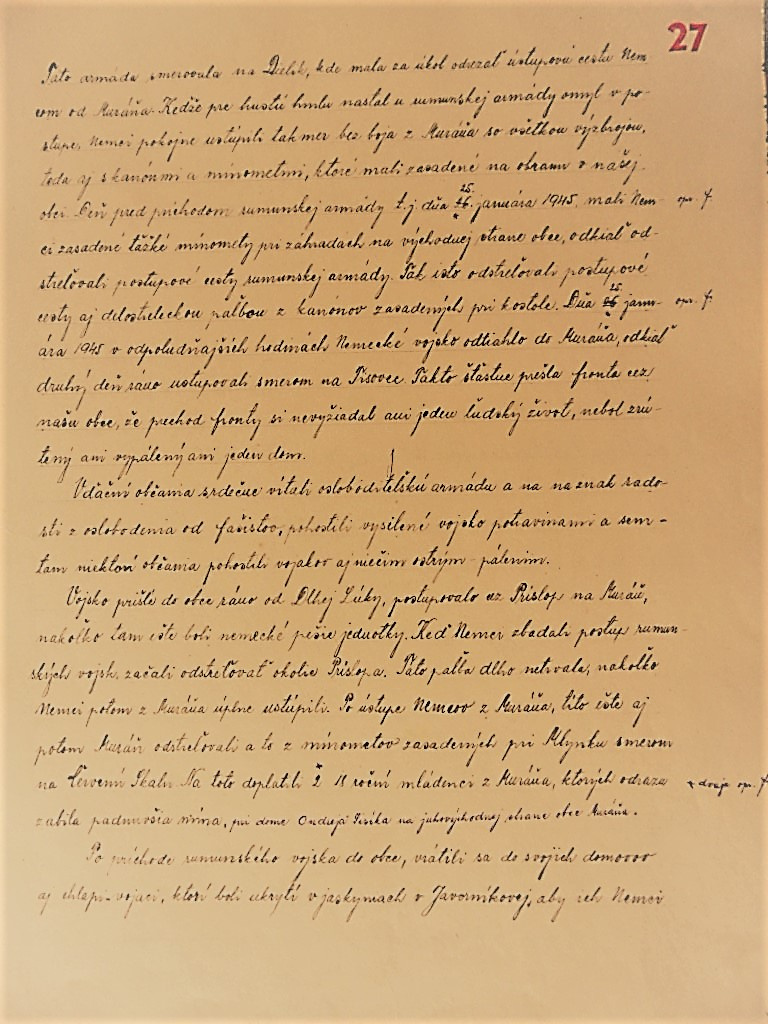 27
Táto armáda smerovala na Dielik, kde mala za úkol odrezať ústupovú cestu Nem-
com od Muráňa. Kedže pre hustú hmlu nastal u rumunskej armády omyl v po-
stupe, Nemci pokojne ustúpili tak mer bez boja z Muráňa so všetkou výzbrojou,
teda aj s kanónmi a mínometmi, ktoré mali zasadené na obranu v našej
obci. Deň pred príchodom rumunskej armády t.j. dňa 25. januára 1945, mali Nem- opr. f.
ci zasadené ťažké mínomety pri záhradach na východnej strane obce, odkiaľ od-
streľovali postupové cesty rumunskej armády. Tak isto odstreľovali postupové
cesty aj delostreleckou paľbou z kanónov zasadených pri kostole. Dňa 25 janu- opr. f.
ára 1945 v odpoludňajších hodinách Nemecké vojsko odtiahlo do Muráňa, odkiaľ
druhý deň ráno ustupovali smerom na Tisovec. Takto šťastne prešla fronta cez
našu obec, že prechod fronty si nevyžiadal ani jeden ľudský život, nebol zrú-
tený ani vypálený ani jeden dom.
Vďační občania srdečne vítali osloboditeľskú armádu a na naznak rado-
sti z oslobodenia od fašistov, pohostili vysilené vojsko potravinami a sem-
tam niektorí občania pohostili vojakov aj niečím ostrým - pálením.
Vojsko prišlé do obce ráno od Dlhej Lúky, postupovalo cez Príslop na Muráň,
nakoľko tam ešte boli nemecké pešie jednotky. Keď Nemci zbadali postup rumun-
ských vojsk, začali odstreľovať okolie Príslopa. Táto paľba dlho netrvala, nakoľko
Nemci potom z Muráňa úplne ustúpili. Po ústupe Nemcov z Muráňa, títo ešte aj
potom Muráň odstreľovali a to z mínometov zasadených pri Mlynku smerom
na Červenú Skalu. Na toto doplatili 2 18 roční mládenci z Muráňa, ktorých odrazu × dvaja opr. f.
zabila padnuvšia mína, pri dome Ondreja na juhovýchodnej strane obce Muráňa.
Po príchode rumunského vojska do obce, vrátili sa do svojich domovov
aj chlapi-vojaci, ktorí boli ukrytí v jaskyniach v Javorníkovej, aby ich Nemci